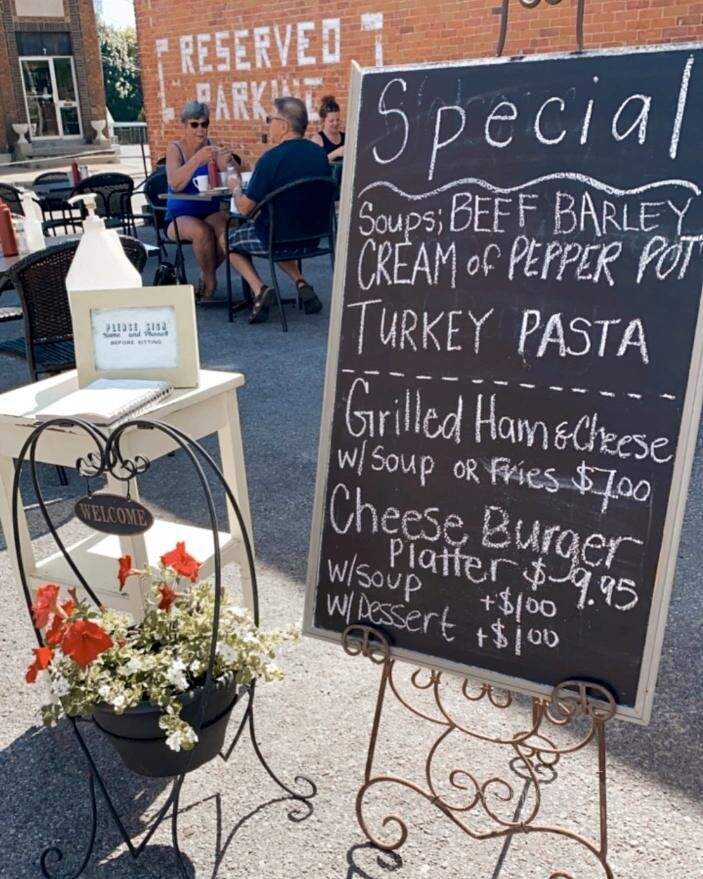 RESERVED
PARKING
Special
Soups; BEEF BARLEY
CREAM of PEPPER POT
TURKEY PASTA
Grilled Ham & Cheese
w/ soup OR Fries $7.00
Cheese Burger
Platter $9.95
w/soup +$1.00
w/ Dessert +$1.00
PLEASE SIGN
Name and Phone#
BEFORE SITTING
WELCOME